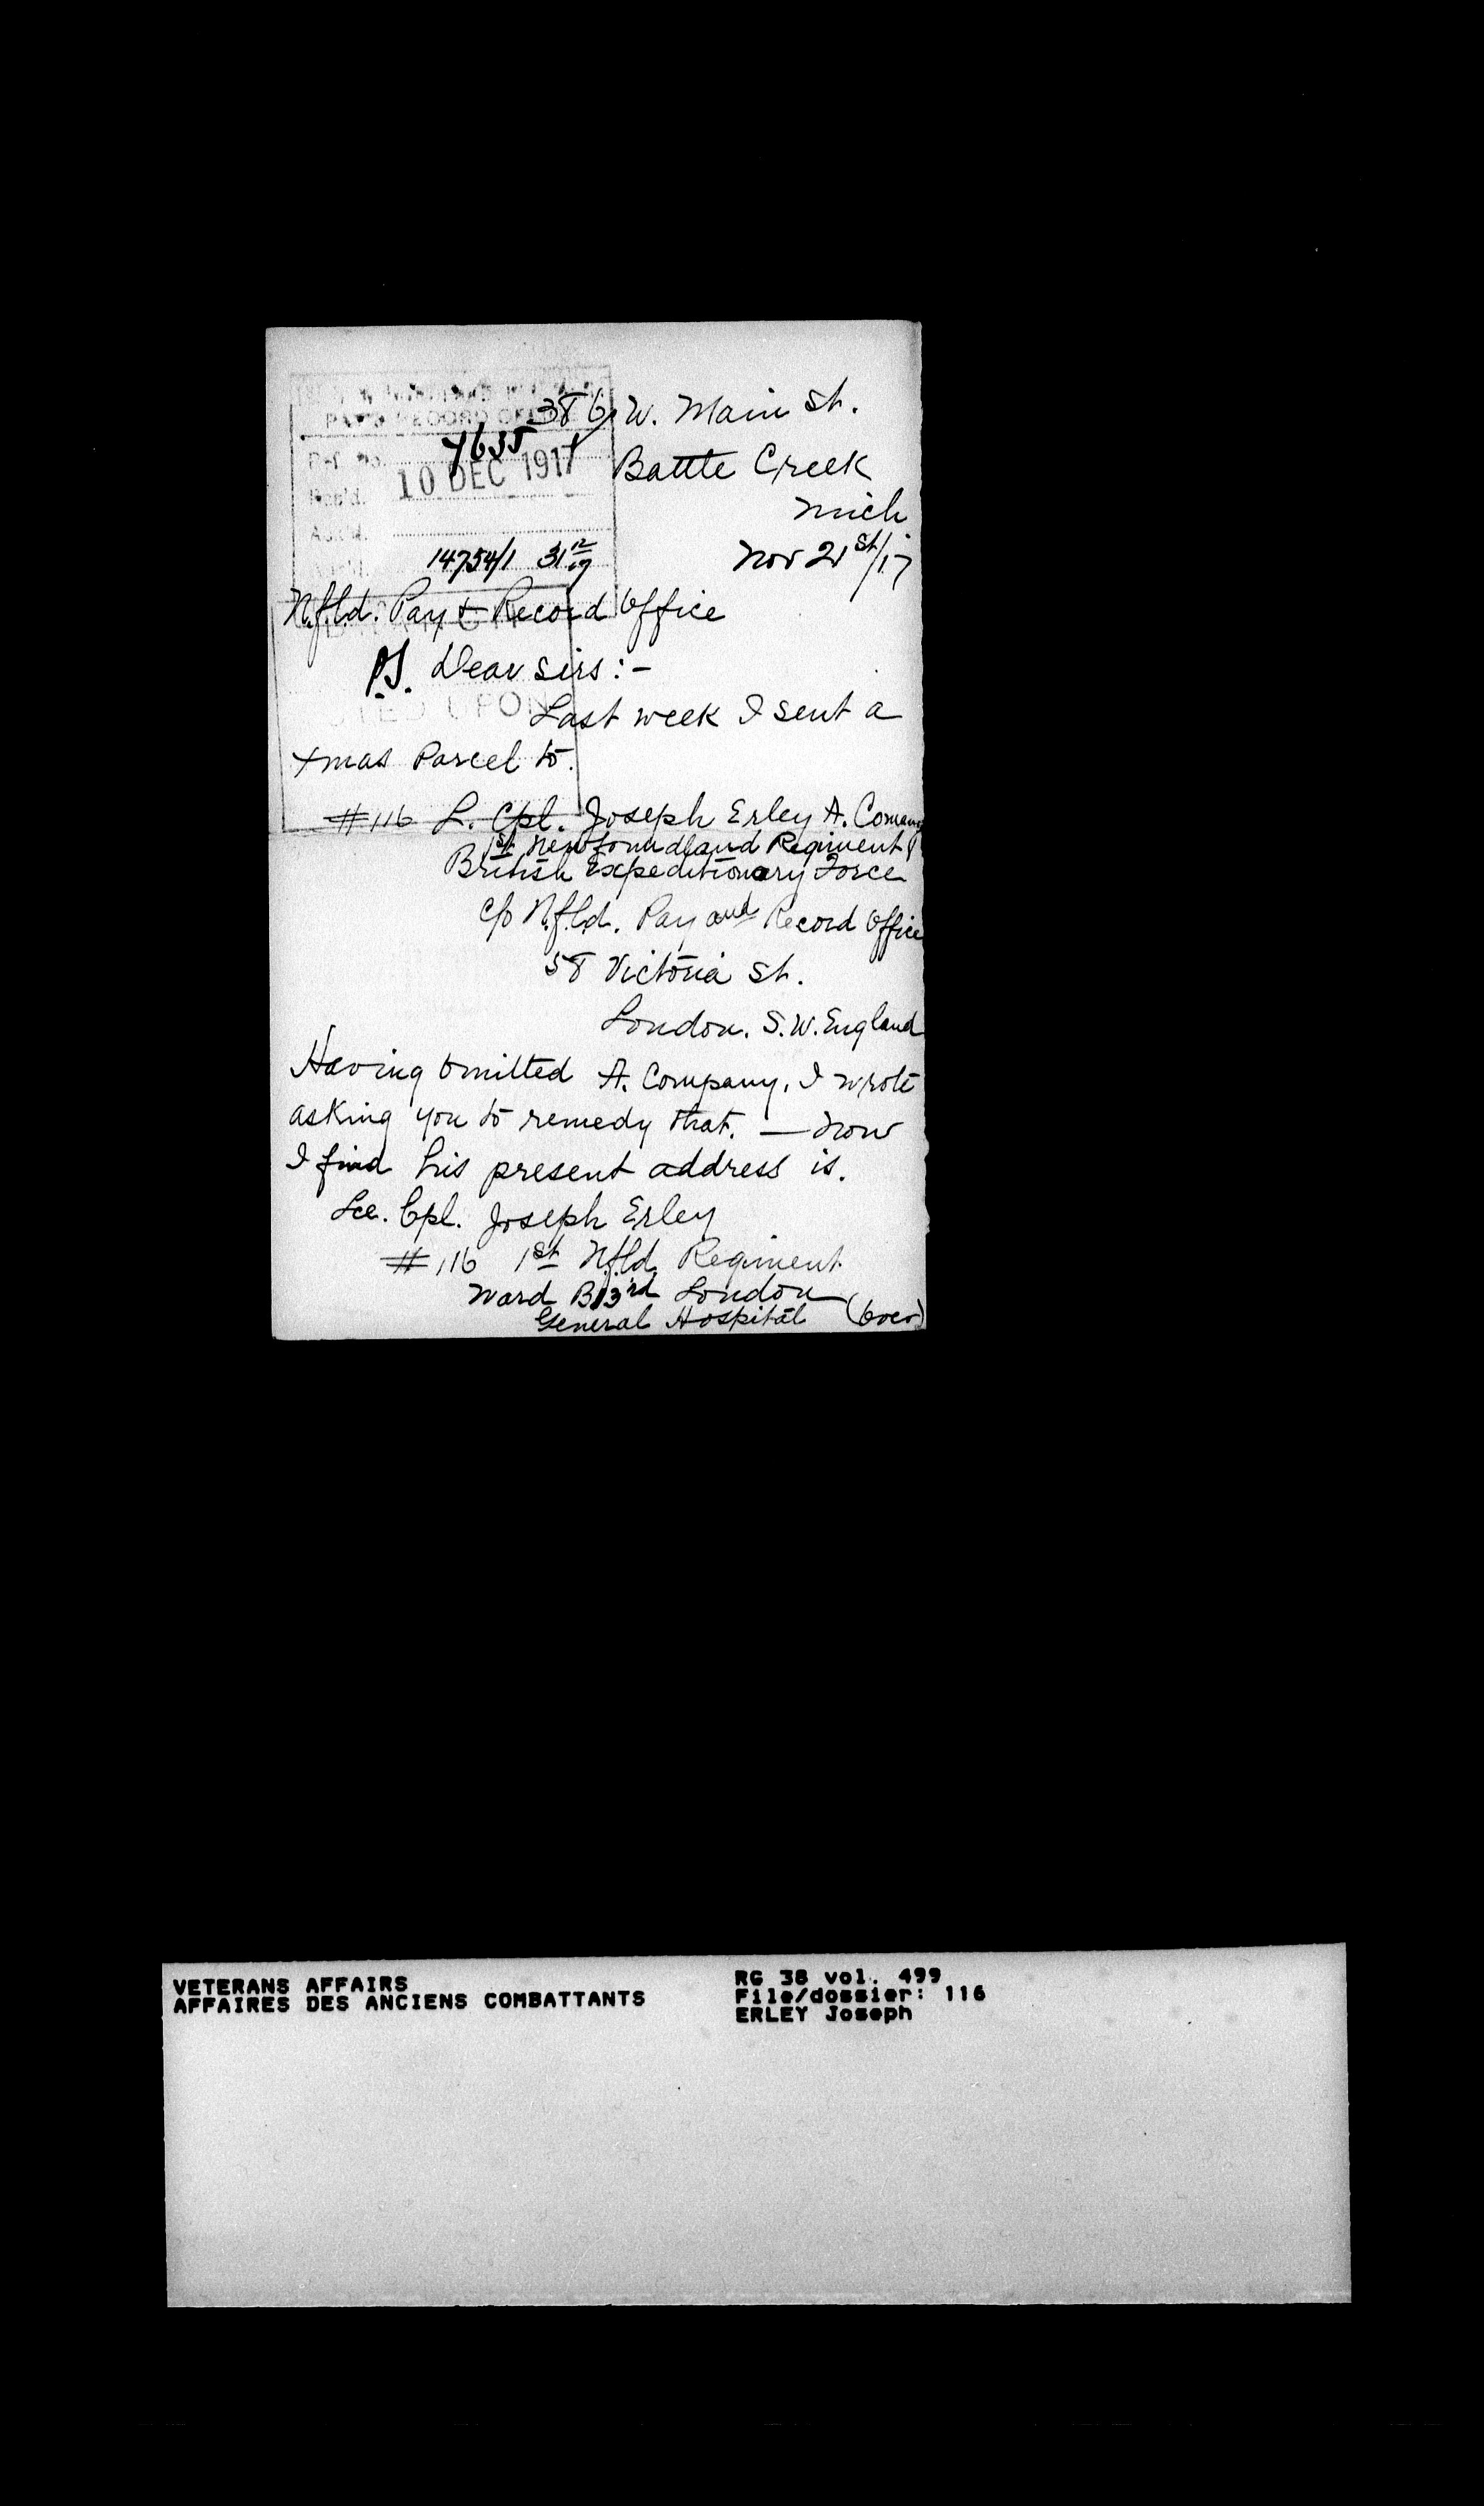 PAY & RECORD OFFICE
Ref. No. 7635
Rec'd. 10 DEC 1917
Ack'd.
14754/1 31 12/17
386 W. Main St.
Battle Creek
Mich
Nov 21st/17
Nfld. Pay & Record Office
P.S. Dear Sirs:-
UPON
Last week I sent a
Xmas Parcel to.
#116 L. Cpl. Joseph Erley A. Comany
1st Newfoundland Regiment
British Expeditionary Force
c/o Nfld. Pay and Record Office
58 Victoria St.
London. S.W. England
Having omitted A. Company, I wrote
asking you to remedy that. — Now
I find his present address is.
Lce. Cpl. Joseph Erley
#116 1st Nfld. Regiment
Ward B13rd London
General Hospital (over)
VETERANS AFFAIRS
AFFAIRES DES ANCIENS COMBATTANTS
RG 38 vol. 499
File/dossier: 116
ERLEY Joseph